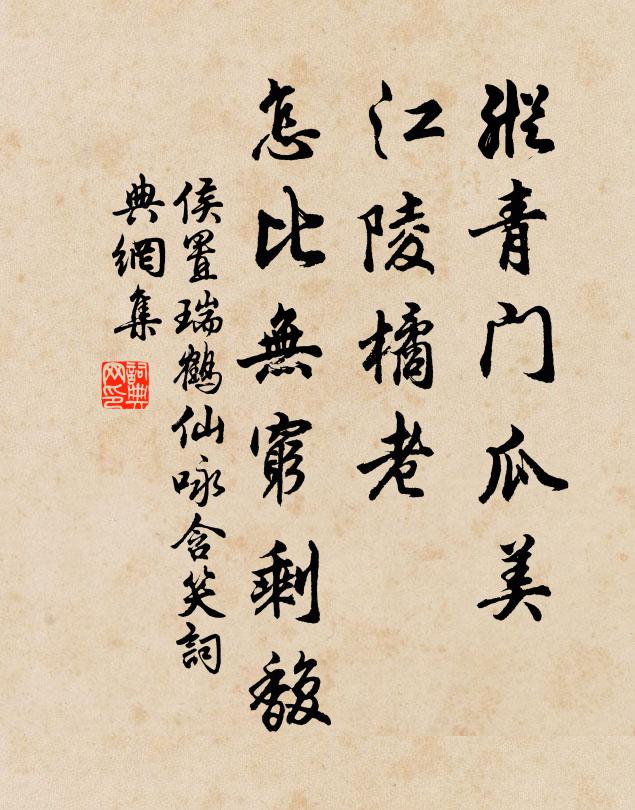 縱青门瓜美
江陵橘老
怎比無窮剩馥
侯置瑞鶴仙咏含笑詞
典網集
詞典网印